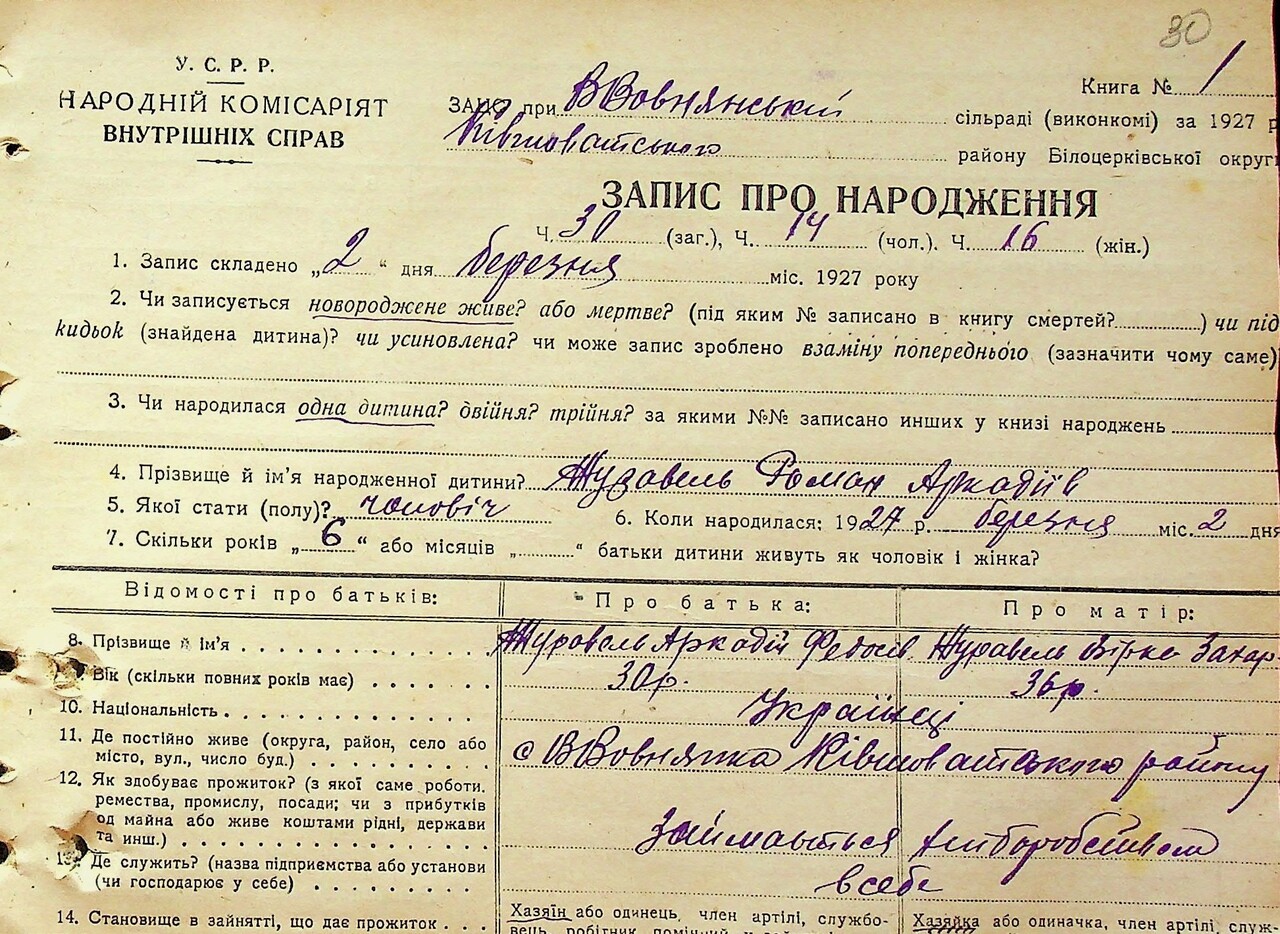 30
У. С. Р. Р.
НАРОДНІЙ КОМІСАРІЯТ
ВНУТРІШНІХ СПРАВ
Книга № 1
ЗАГС при ВВовнянській сільраді (виконкомі) за 1927 р
Ківшоватського району Білоцерківської округи
ЗАПИС ПРО НАРОДЖЕННЯ
Ч. 30 (заг.), Ч. 14 (чол.). Ч. 16 (жін.)
1. Запис складено „2“ дня березня міс. 1927 року
2. Чи записується новороджене живе? або мертве? (під яким № записано в книгу смертей?) чи під
кидьок (знайдена дитина)? чи усиновлена? чи може запис зроблено взаміну попереднього (зазначити чому саме)
3. Чи народилася одна дитина? двійня? трійня? за якими №№ записано инших у книзі народжень
4. Прізвище й ім’я народженної дитини? Журавель Роман Аркадіїв
5. Якої стати (полу)? чоловіч 6. Коли народилася: 1927 р. березня міс. 2 дня
7. Скільки років „6“ або місяців „ “ батьки дитини живуть як чоловік і жінка?
Відомості про батьків: Про батька: Про матір:
8. Прізвище й ім’я Журавель Аркадій Федосів Журавель Вірка Захар
Вік (скільки повних років має) 30р. 36р.
10. Національність Українці
11. Де постійно живе (округа, район, село або
місто, вул., число буд.) с ВВовнянка Ківшоватського району
12. Як здобуває прожиток? (з якої саме роботи.
ремества, промислу, посади; чи з прибутків
од майна або живе коштами рідні, держави
та инш.) Займається хліборобством
13. Де служить? (назва підприємства або установи
(чи господарює у себе) в себе
14. Становище в зайнятті, що дає прожиток
Хазяїн або одинець, член артілі, службо-
вець, робітник, помічний
Хазяйка або одиначка, член артілі, служ-